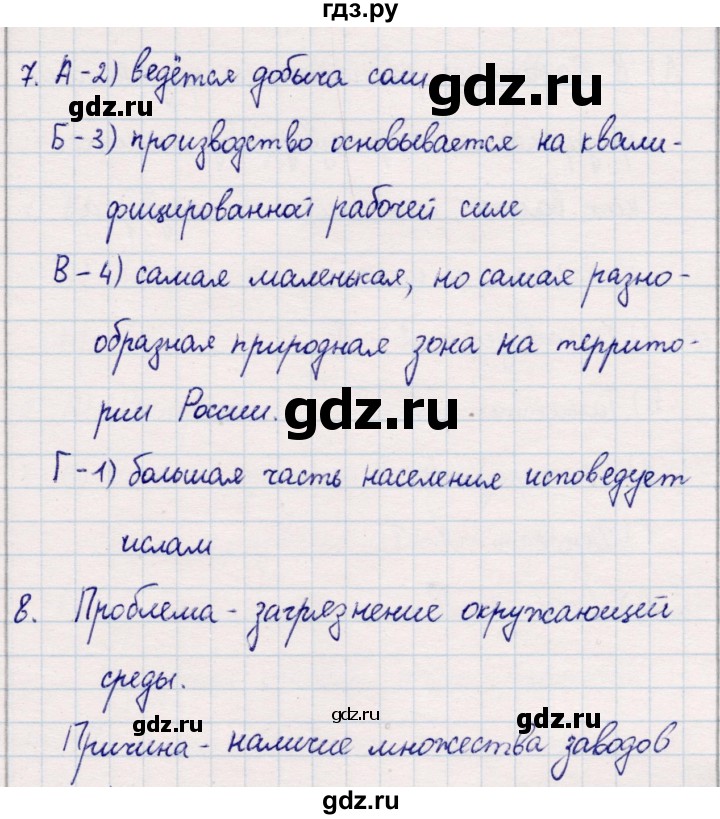 гдз.ру
7. А-2) ведётся добыча соли
gdz.ru
gdz.ru
Б-3) производство основывается на квали-
фицированной рабочей силе
В-4) самая маленькая, но самая разно-
образная природная зона на террито-
рии России.
gdz.ru
Г-1) большая часть населения исповедует
ислам
8. Проблема - загрязнение окружающей
среды.
gdz.ru
gdz.ru
gdz.ru
Причина - наличие множества заводов
gdz.ru